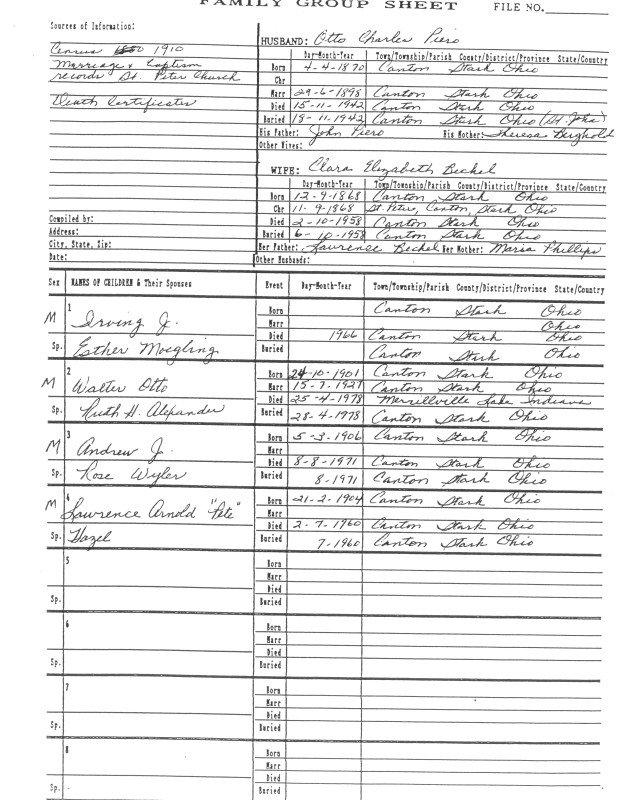 FAMILY GROUP SHEET FILE NO.
Sources of Information:
Census 1910
Marriage & baptism
records St. Peter Church
Death Certificates
Compiled by:
Address:
City, State, Zip:
Date:
HUSBAND: Otto Charles Piero
Day-Month-Year Town/Township/Parish County/District/Province State/Country
Born 4-4-1870 Canton Stark Ohio
Chr
Marr 29-6-1898 Canton Stark Ohio
Died 15-11-1942 Canton Stark Ohio
Buried 18-11-1942 Canton Stark Ohio (St. John)
His Father: John Piero His Mother: Theresa Berghold
Other Wives:
WIFE: Clara Elizabeth Bechel
Day-Month-Year Town/Township/Parish County/District/Province State/Country
Born 12-9-1868 Canton Stark Ohio
Chr 11-9-1868 St. Peter, Canton, Stark Ohio
Died 2-10-1958 Canton Stark Ohio
Buried 6-10-1958 Canton Stark Ohio
Her Father: Lawrence Bechel Her Mother: Maria Phillips
Other Husbands:
Sex NAMES OF CHILDREN & Their Spouses Event Day-Month-Year Town/Township/Parish County/District/Province State/Country
1 Born Canton Stark Ohio
M Irving J. Marr Ohio
Died 1966 Canton Stark Ohio
Sp. Esther Moegling Buried Canton Stark Ohio
2 Born 24-10-1901 Canton Stark Ohio
M Walter Otto Marr 15-7-1927 Canton Stark Ohio
Died 25-4-1978 Merrillville Lake Indiana
Sp. Ruth H. Alexander Buried 28-4-1978 Canton Stark Ohio
3 Born 5-3-1906 Canton Stark Ohio
M Andrew J. Marr
Died 8-8-1971 Canton Stark Ohio
Sp. Rose Wyler Buried 8-1971 Canton Stark Ohio
4 Born 21-2-1904 Canton Stark Ohio
M Lawrence Arnold "Pete" Marr
Died 2-7-1960 Canton Stark Ohio
Sp. Hazel Buried 7-1960 Canton Stark Ohio
5 Born
Marr
Died
Sp. Buried
6 Born
Marr
Died
Sp. Buried
7 Born
Marr
Died
Sp. Buried
8 Born
Marr
Died
Sp. Buried